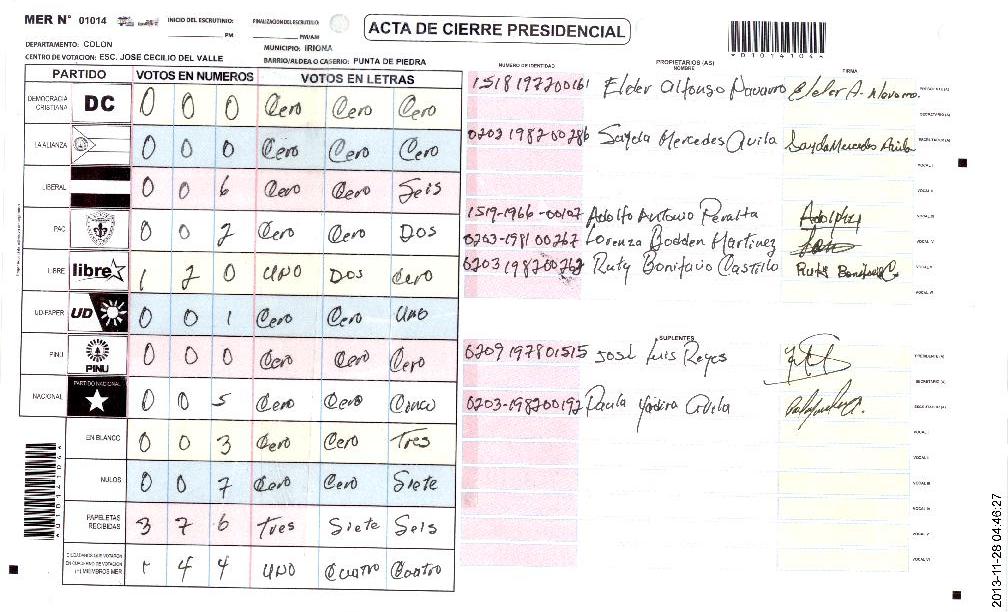 MER N° 01014 INICIO DEL ESCRUTINIO: PM FINALIZACION DEL ESCRUTINIO: PM/AM
ACTA DE CIERRE PRESIDENCIAL
DEPARTAMENTO: COLON MUNICIPIO: IRIONA
CENTRO DE VOTACION: ESC. JOSE CECILIO DEL VALLE BARRIO/ALDEA O CASERIO: PUNTA DE PIEDRA
PARTIDO VOTOS EN NUMEROS VOTOS EN LETRAS
DEMOCRACIA CRISTIANA DC 0 0 0 Cero Cero Cero
LA ALIANZA 0 0 0 Cero Cero Cero
LIBERAL 0 0 6 Cero Cero Seis
PAC 0 0 2 Cero Cero Dos
LIBRE libre 1 2 0 UNO DOS Cero
UD-FAPER UD 0 0 1 Cero Cero Uno
PINU PINU 0 0 0 Cero Cero Cero
NACIONAL PARTIDO NACIONAL 0 0 5 Cero Cero Cinco
EN BLANCO 0 0 3 Cero Cero Tres
NULOS 0 0 7 Cero Cero Siete
PAPELETAS RECIBIDAS 3 7 6 Tres Siete Seis
CIUDADANOS QUE VOTARON EN CUADERNO DE VOTACION (+) MIEMBROS MER 1 4 4 UNO Cuatro Cuatro
NUMERO DE IDENTIDAD PROPIETARIOS (AS) NOMBRE FIRMA
1518197200161 Elder Alfonso Navarro Elder A. Navarro. PRESIDENTE (A)
SECRETARIO (A)
0203198200286 Sayda Mercedes Avila Sayda Mercedes Avila ESCRUTADOR (A)
VOCAL I
VOCAL II
1519-1966-00107 Adolfo Antonio Peralta VOCAL III
0203-1981 00267 Lorenza Bodden Martinez VOCAL IV
0203198200262 Ruty Bonifacio Castillo VOCAL V
VOCAL VI
SUPLENTES
0209197801515 José Luis Reyes PRESIDENTE (A)
SECRETARIO (A)
0203-198200192 Paula Yadira Avila ESCRUTADOR (A)
VOCAL I
VOCAL II
VOCAL III
VOCAL IV
VOCAL V
VOCAL VI
2013-11-28 04:46:27